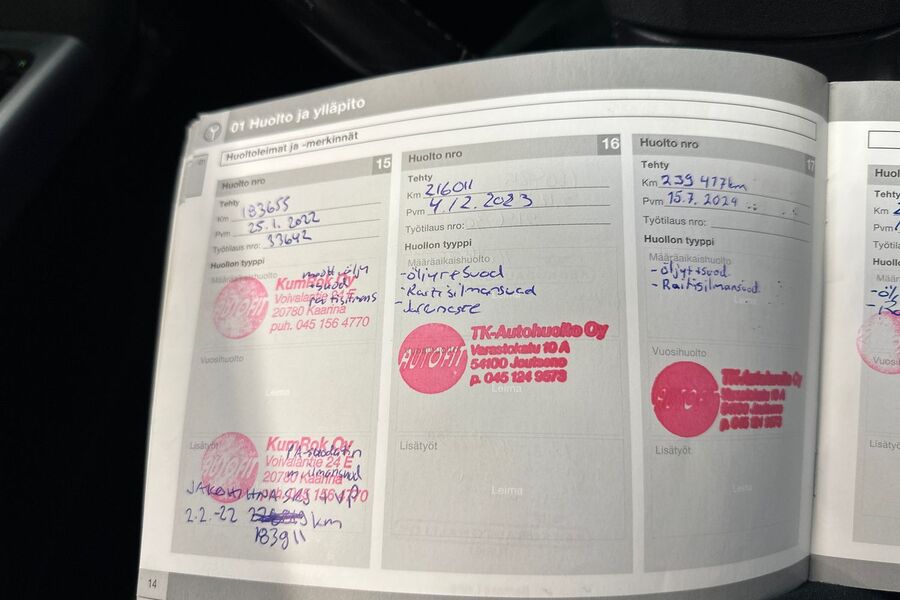 01 Huolto ja ylläpito
Huoltoleimat ja -merkinnät
Huolto nro 15
Tehty
Km 183655
Pvm 25.1.2022
Työtilaus nro: 33642
Huollon tyyppi
Määräaikaishuolto
+suod
AUTOFIT
KumRok Oy
Voivalantie 24 E
20780 Kaarina
puh. 045 156 4770
Vuosihuolto
Leima
Lisätyöt
AUTOFIT
KumRok Oy
Voivalantie 24 E
20780 Kaarina
puh. 045 156 4770
2.2.-22 km
183911
14
Huolto nro 16
Tehty
Km 216011
Pvm 4.12.2023
Työtilaus nro:
Huollon tyyppi
Määräaikaishuolto
-öljyresuod
-Raitisilmansuod
-Jarruneste
AUTOFIT
TK-Autohuolto Oy
Varastokatu 10 A
54100 Joutseno
p. 045 124 9573
Leima
Lisätyöt
Leima
Huolto nro 17
Tehty
Km 239 477km
Pvm 15.7.2024
Työtilaus nro:
Huollon tyyppi
Määräaikaishuolto
-öljyt+suod
-Raitisilmansuod
Leima
Vuosihuolto
AUTOFIT
TK-Autohuolto Oy
Varastokatu 10 A
54100 Joutseno
p. 045 124 9573
Lisätyöt
Leima